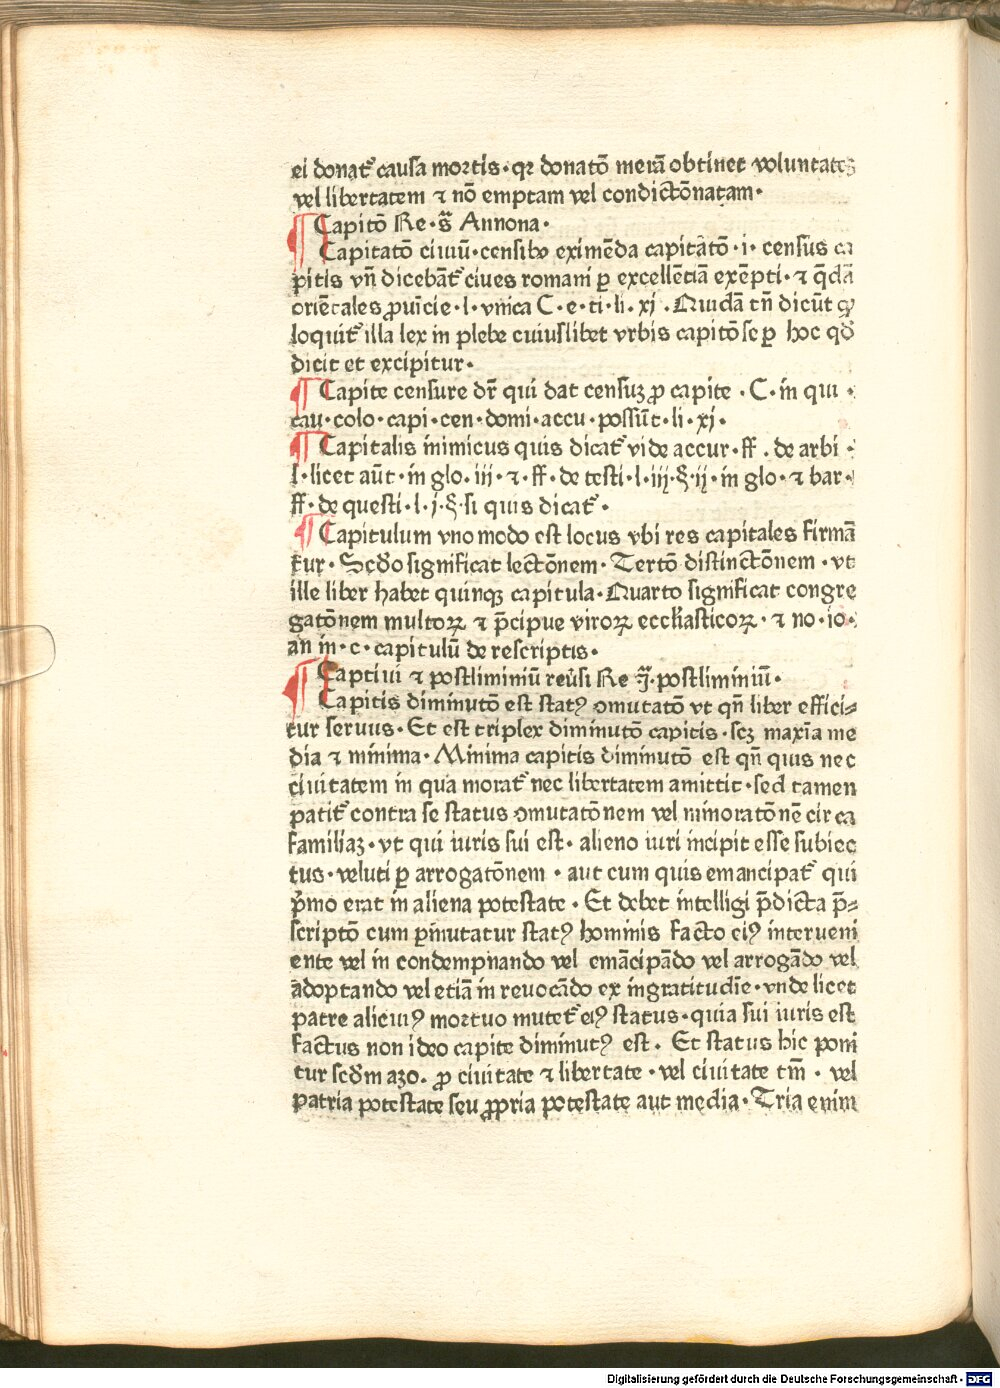 ei donat᷑ causa mortis · qr donatō merā obtinet voluntatez
vel libertatem ⁊ nō emptam vel condictōnatam ·
¶ Capitō Re · s̄ Annona ·
Capitatō ciuiū · censibꝫ eximēda capitātō · i · census ca
pitis vn̄ dicebāt᷑ ciues romani ꝑ excellētiā exēpti · ⁊ q̄dā
oriētales ꝓuīcie · l · vnica C · e · ti · li · xj · Quidā tn̄ dicūt ꝙ
loquit᷑ illa lex in plebe cuiuslibet vrbis capitō se ꝑ hoc qđ
dicit et excipitur ·
¶ Capite censure dr̄ qui dat censuꝫ ꝓ capite · C · in qui ·
cau · colo · capi · cen · domi · accu · possūt · li · xj ·
¶ Capitalis inimicus quis dicat᷑ vide accur · ff · de arbi ·
l · licet aūt · in glo · iii · ⁊ · ff · de testi · l · iij · § · ij · in glo · ⁊ bar ·
ff · de questi · l · j · § · si quis dicat᷑ ·
¶ Capitulum vno modo est locus vbi res capitales firmā
tur · Scđo significat lectōnem · Tertō distinctōnem · vt
ille liber habet quinqꝫ capitula · Quarto significat congre
gatōnem multoꝝ ⁊ p̄cipue viroꝝ eccliasticoꝝ · ⁊ no · io ·
an in · c · capitulū de rescriptis ·
¶ Captiui ⁊ postliminiū reūsi Re q̄ · postliminiū ·
Capitis diminutō est statꝰ ꝯmutatō vt qn̄ liber effici⸗
tur seruus · Et est triplex diminutō capitis · scꝫ maxīa me
dia ⁊ minima · Minima capitis diminutō est qn̄ quis nec
ciuitatem in qua morat᷑ nec libertatem amittit · sed tamen
patit᷑ contra se status ꝯmutatōnem vel minoratōnē circa
familiaꝫ · vt qui iuris sui est · alieno iuri incipit esse subiec
tus · veluti ꝑ arrogatōnem · aut cum quis emancipat᷑ qui
p̄mo erat in aliena potestate · Et debet intelligi p̄dicta p̄⸗
scriptō cum ꝑmutatur statꝰ hominis facto eiꝰ interueni
ente vel in condempnando vel emācipādo vel arrogādo vel
adoptando vel etiā in reuocādo ex ingratitudīe · vnde licet
patre alicuiꝰ mortuo mutet᷑ eiꝰ status · quia sui iuris est
factus non ideo capite diminutꝰ est · Et status hic poni
tur scđm azo · ꝓ ciuitate ⁊ libertate · vel ciuitate tm̄ · vel
patria potestate seu ꝓpria potestate aut media · Tria enim
Digitalisierung gefördert durch die Deutsche Forschungsgemeinschaft · DFG